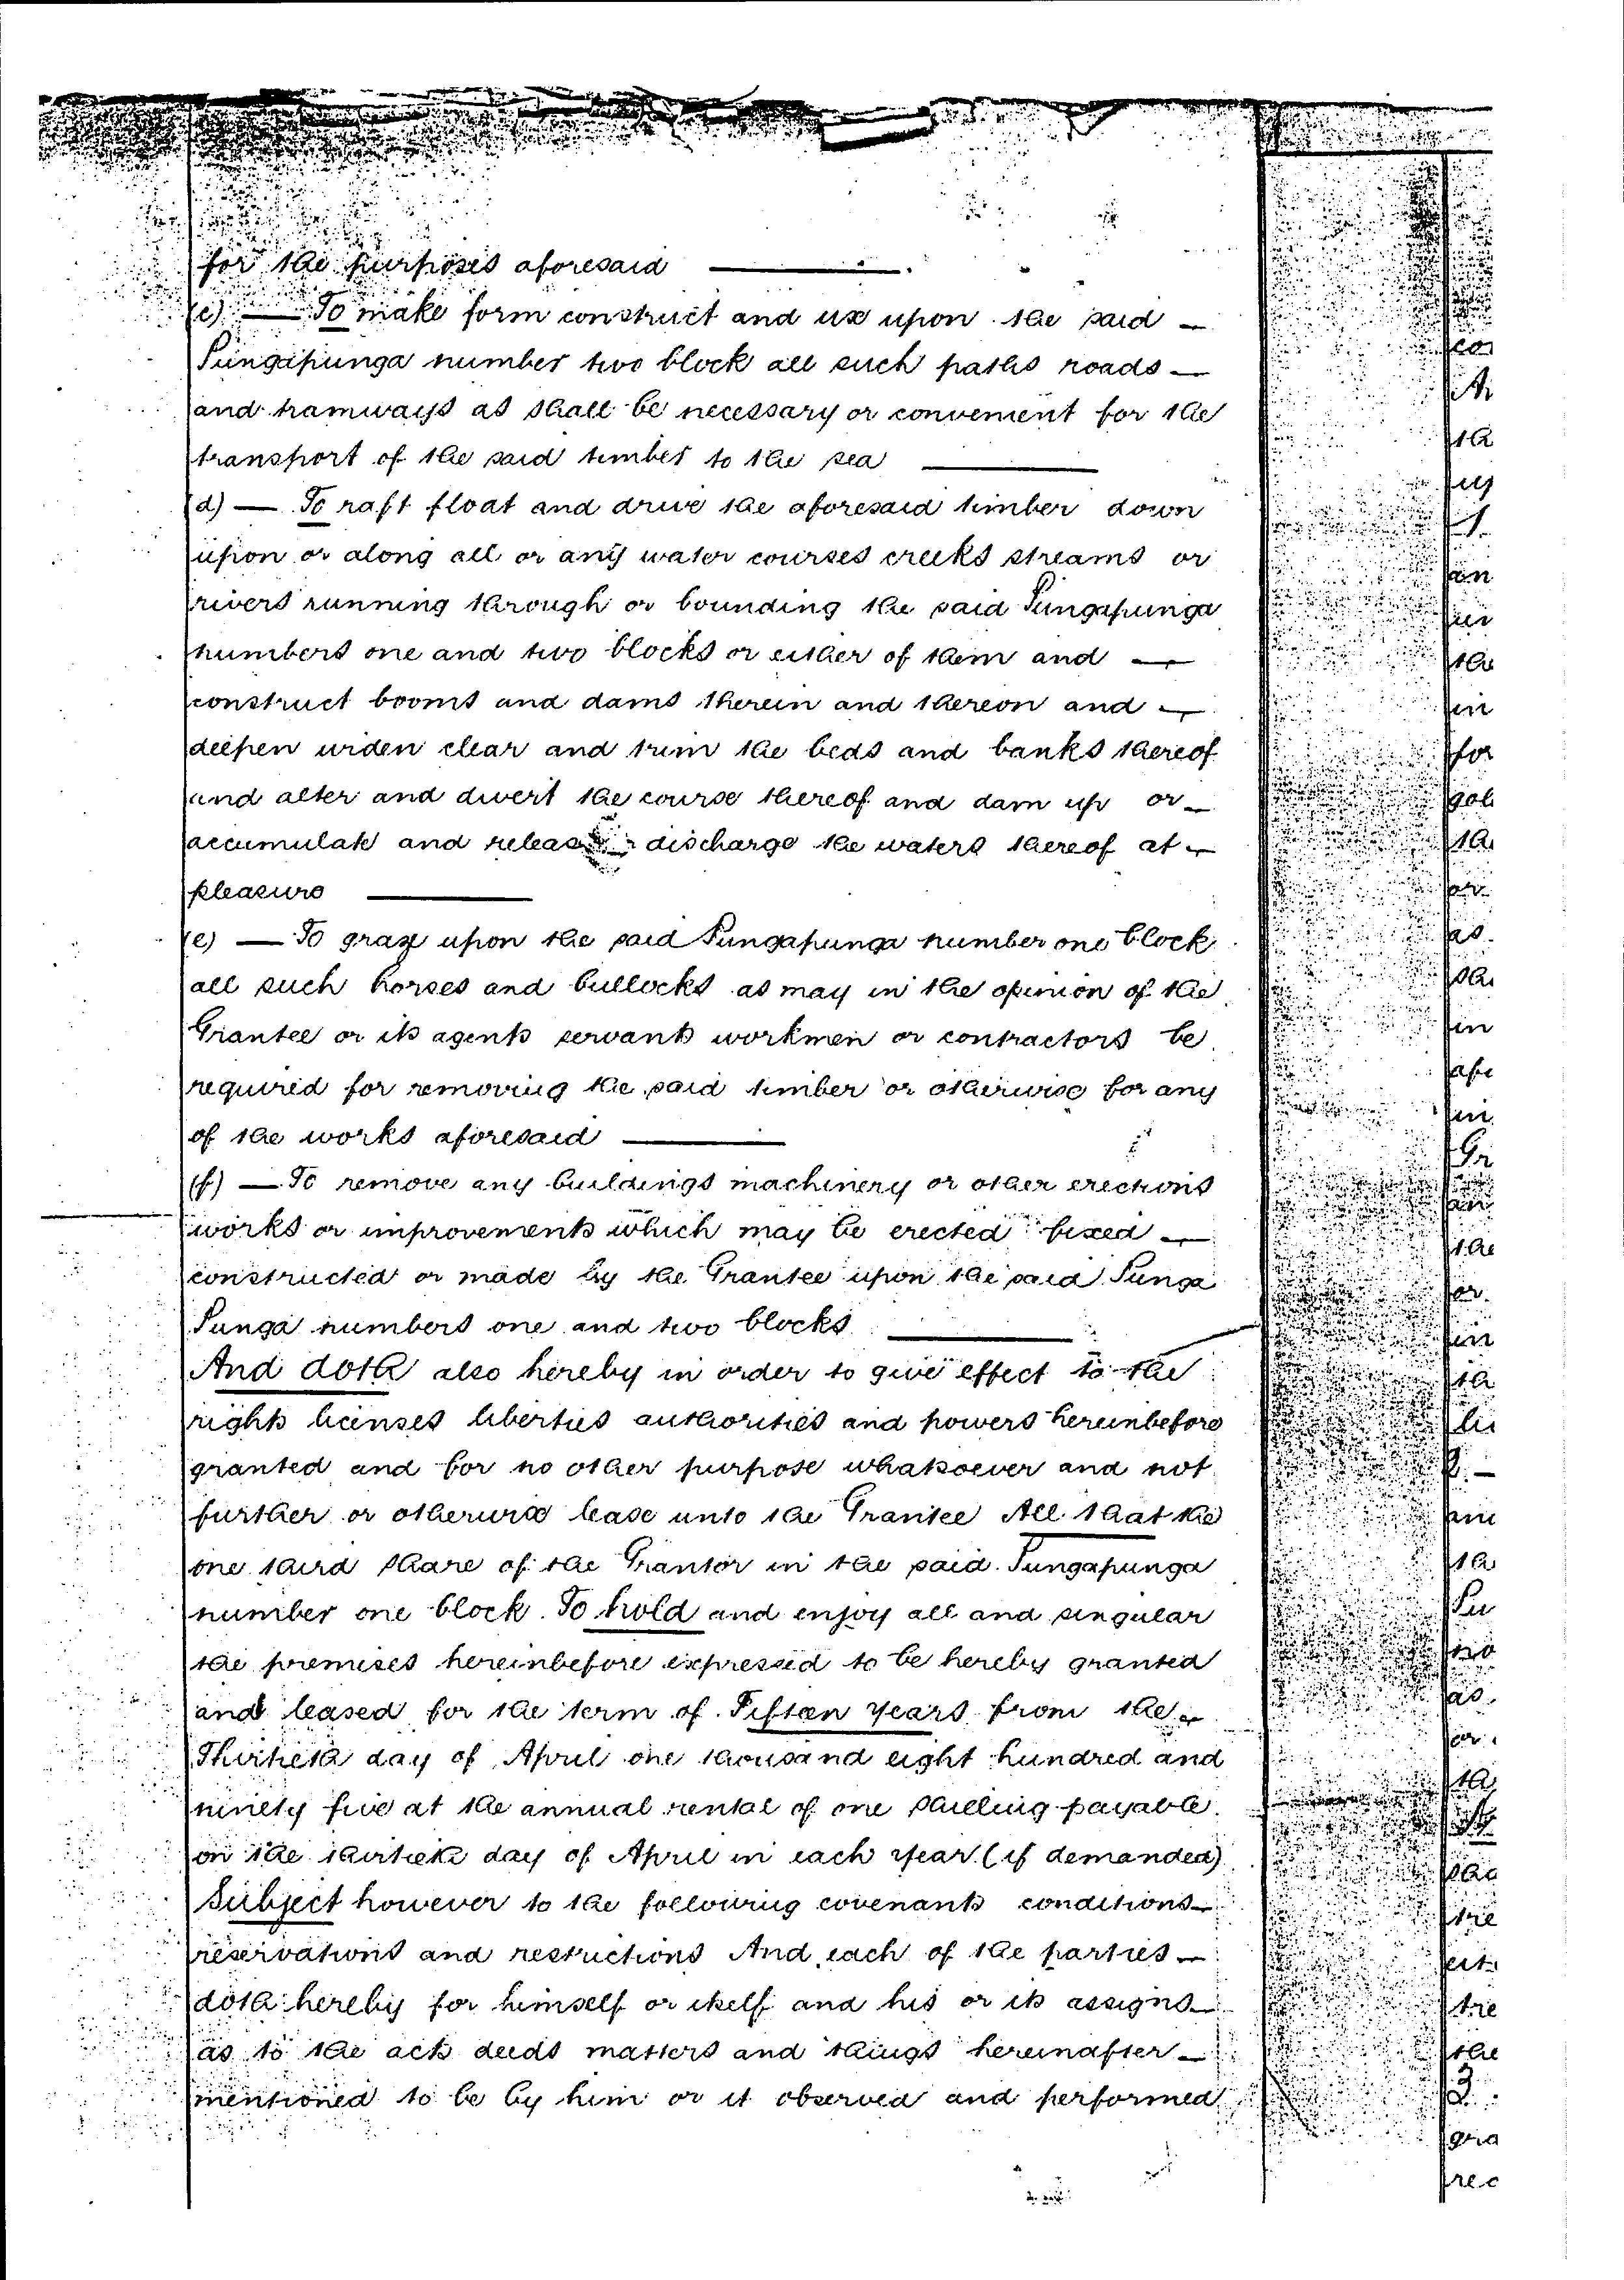 for the purposes aforesaid
(c) — To make form construct and use upon the said —
Pungapunga number two block all such paths roads —
and tramways as shall be necessary or convenient for the
transport of the said timber to the sea
(d) — To raft float and drive the aforesaid timber down
upon or along all or any water courses creeks streams or
rivers running through or bounding the said Pungapunga
numbers one and two blocks or either of them and —
construct booms and dams therein and thereon and —
deepen widen clear and trim the beds and banks thereof
and alter and divert the course thereof and dam up or —
accumulate and release discharge the waters thereof at —
pleasure
(e) — To graze upon the said Pungapunga number one block
all such horses and bullocks as may in the opinion of the
Grantee or its agents servants workmen or contractors be
required for removing the said timber or otherwise for any
of the works aforesaid
(f) — To remove any buildings machinery or other erections
works or improvements which may be erected fixed —
constructed or made by the Grantee upon the said Punga
Punga numbers one and two blocks
And doth also hereby in order to give effect to the
rights licenses liberties authorities and powers hereinbefore
granted and for no other purpose whatsoever and not
further or otherwise lease unto the Grantee All that the
one third share of the Grantor in the said Pungapunga
number one block. To hold and enjoy all and singular
the premises hereinbefore expressed to be hereby granted
and leased for the term of Fifteen years from the —
Thirtieth day of April one thousand eight hundred and
ninety five at the annual rental of one shilling payable
on the thirtieth day of April in each year (if demanded)
Subject however to the following covenants conditions —
reservations and restrictions And each of the parties —
doth hereby for himself or itself and his or its assigns —
as to the acts deeds matters and things hereinafter —
mentioned to be by him or it observed and performed